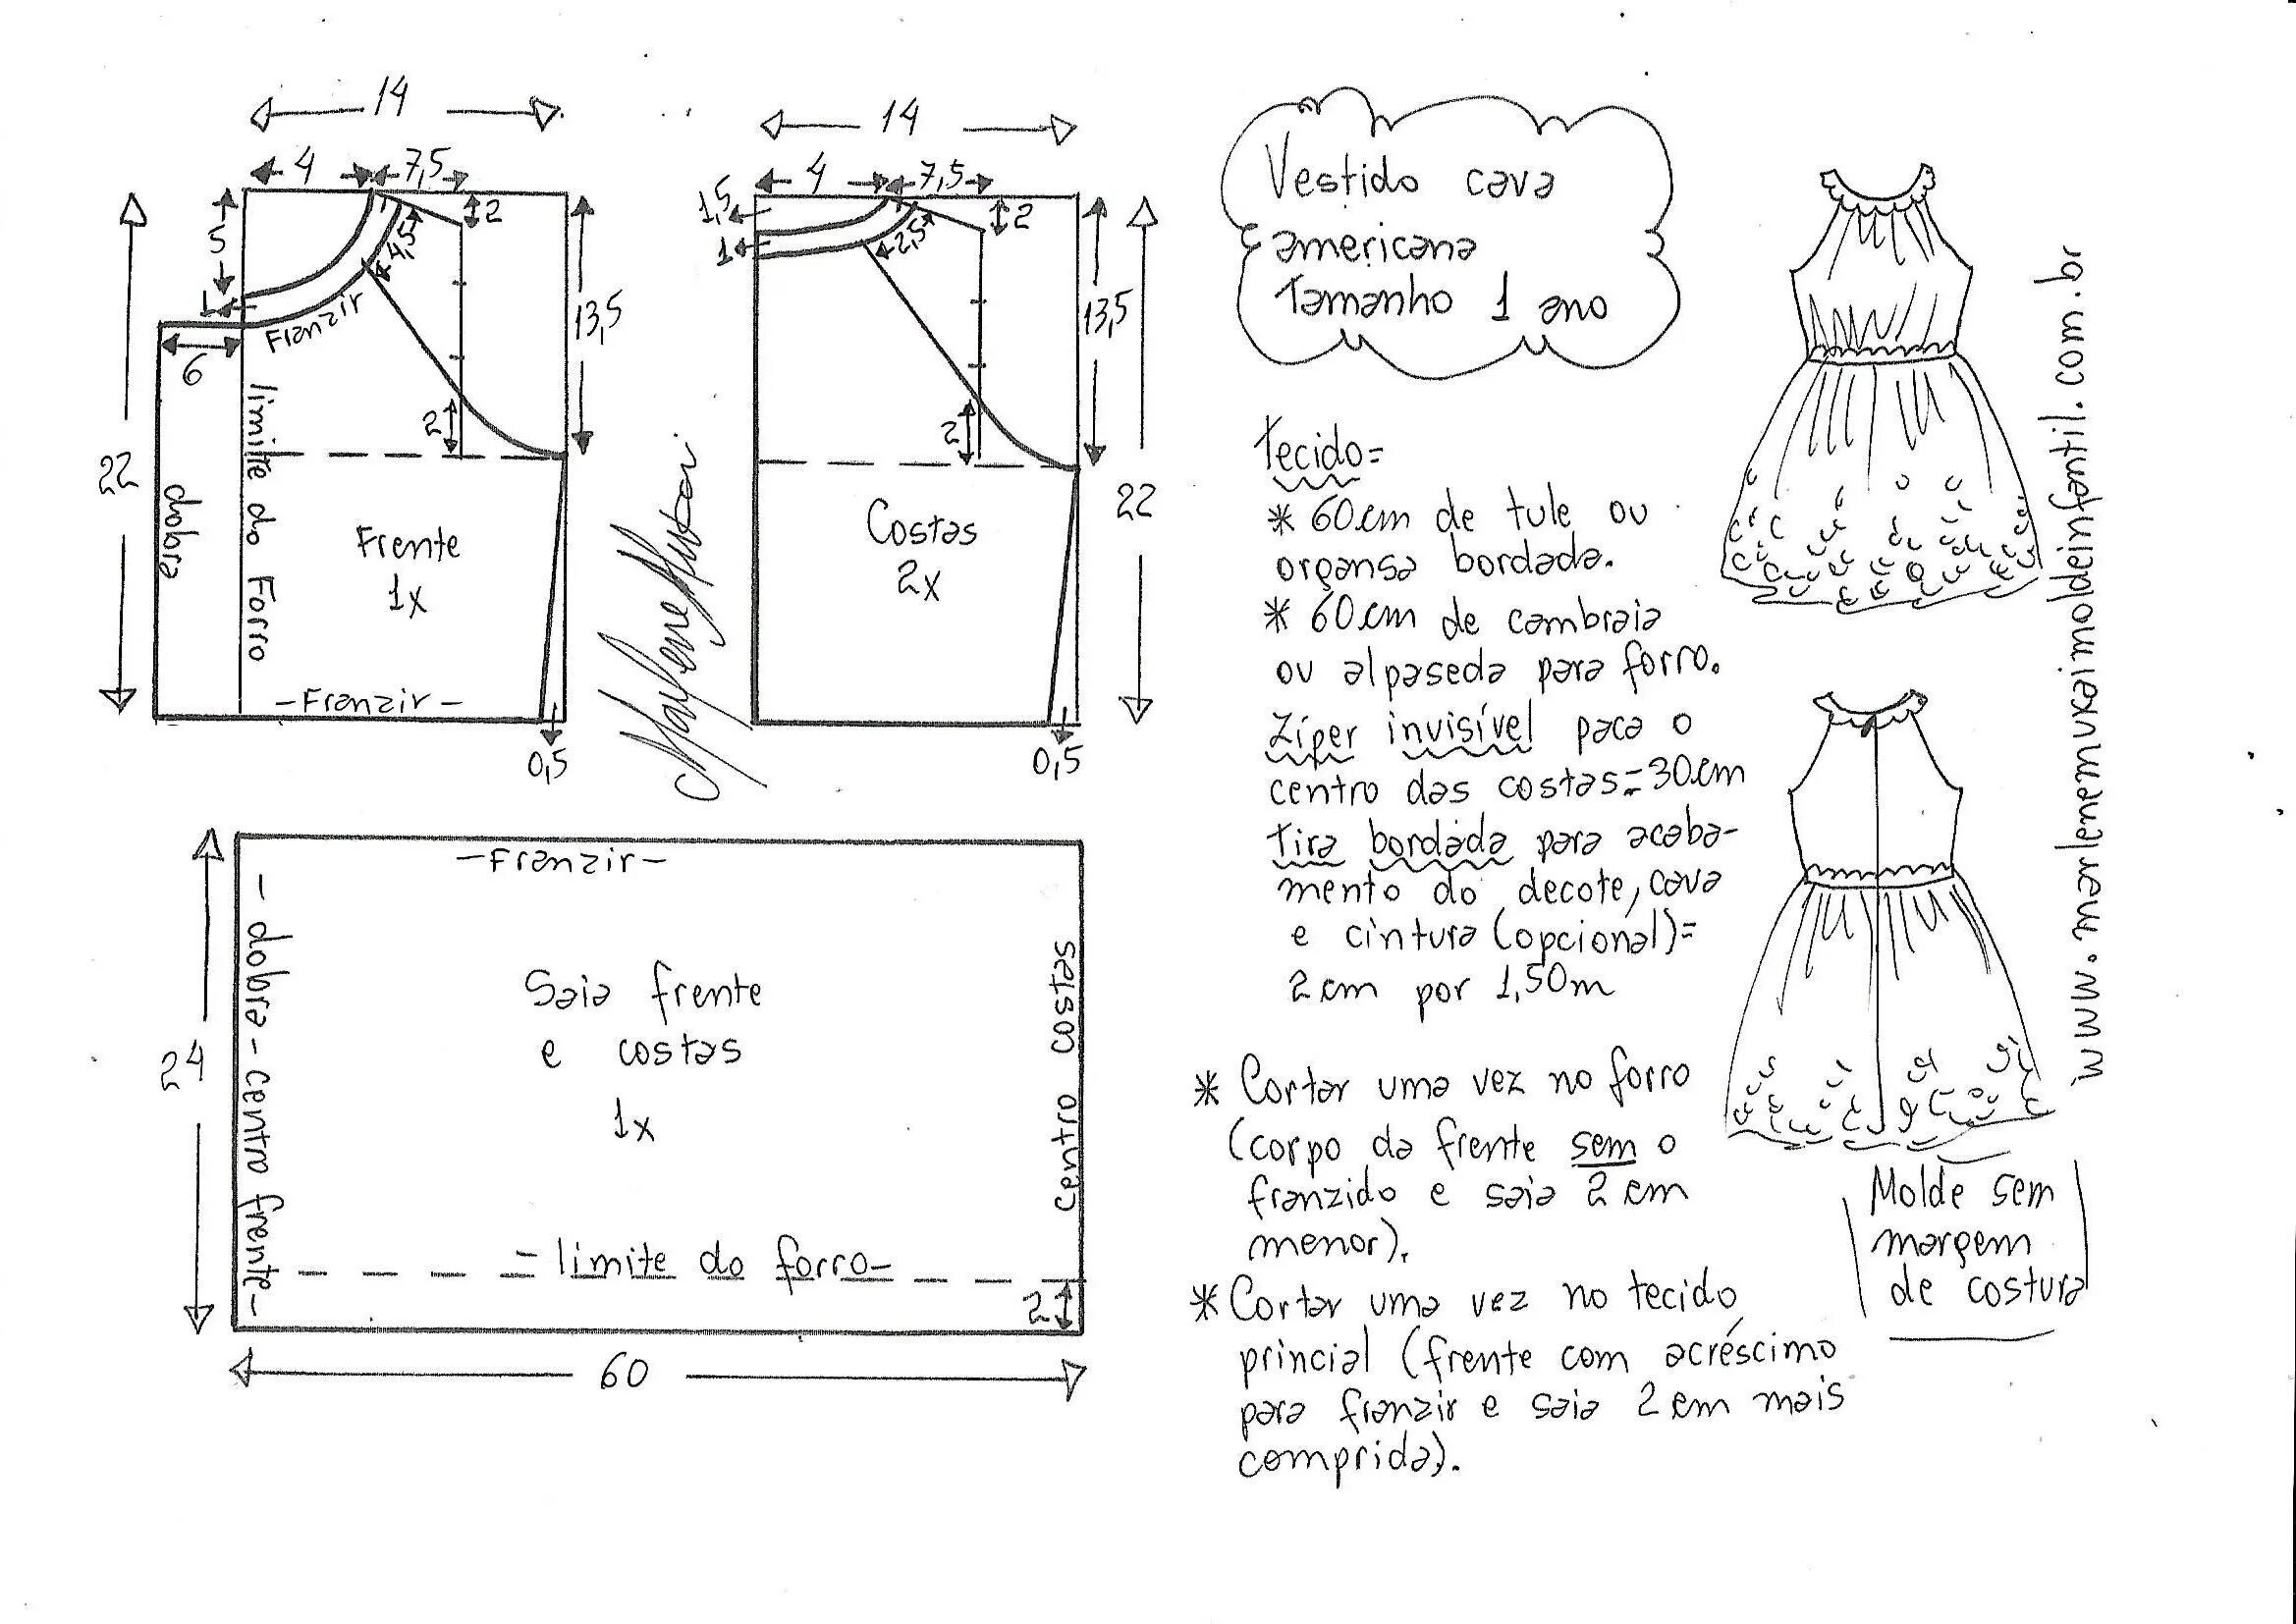 14
4
7,5
5
2
4,5
1
Franzir
13,5
6
22
limite do Forro
dobra
2
Frente
1x
-Franzir-
0,5
14
4
7,5
1,5
2
1
2,5
13,5
2
22
Costas
2x
0,5
Vestido cava
americana
Tamanho 1 ano
Tecido=
* 60cm de tule ou
organsa bordada.
* 60cm de cambraia
ou alpaseda para forro.
Zíper invisível para o
centro das costas=30cm
tira bordada para acaba-
mento do decote, cava
e cintura (opcional)=
2cm por 1,50m
* Cortar uma vez no forro
(corpo da frente sem o
franzido e saia 2cm
menor).
* Cortar uma vez no tecido
princial (frente com acréscimo
para franzir e saia 2cm mais
comprida).
-Franzir-
-dobra-centro frente-
24
Saia frente
e costas
1x
centro costas
=limite do forro-
2
60
www.marlenemukaimoldeinfantil.com.br
Molde sem
margem
de costura